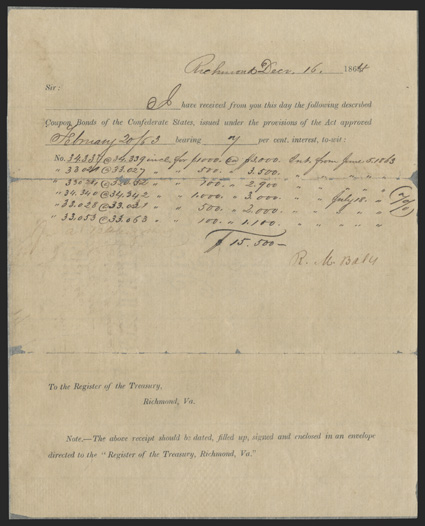 Richmond, Decr. 16. 186
Sir:
I have received from you this day the following described
Coupon Bonds of the Confederate States, issued under the provisions of the Act approved
February 20/63 bearing 7 per cent. interest, to-wit:
No. 34.337 @ 34.339 for $1000. @ Int. from June 5. 1863
" 33.027 " " 500. " 3.500.
" " " 100. " 2.900 " " "
" 34.340 @ 34.342 " 1.000. " 3.000 " " July 18. "
" 33.028 @ " " 500. " 2.000. " " " "
" 33.053 @ 33.063 " 100. " 1.100. " " " "
$ 15.500—
R. M.
To the Register of the Treasury,
Richmond, Va.
Note.—The above receipt should be dated, filled up, signed and enclosed in an envelope
directed to the "Register of the Treasury, Richmond, Va."